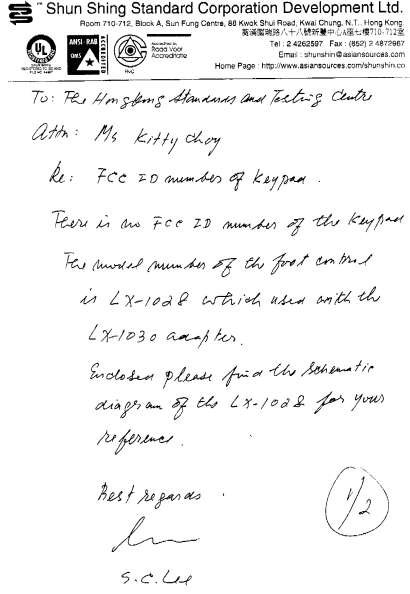 Shun Shing Standard Corporation Development Ltd.
Room 710-712, Block A, Sun Fung Centre, 88 Kwok Shui Road, Kwai Chung, N.T., Hong Kong.
葵涌國瑞路八十八號新豐中心A座七樓710-712室
Tel : 2 4262597 Fax : (852) 2 4872967
Email : shunshin@asiansources.com
Home Page : http://www.asiansources.com/shunshin.co
UL
ANSI · RAB
QMS
RvC
Accredited by
Raad Voor
Accreditatie
To: The Hongkong Standards and Testing Centre
Attn: Ms Kitty Choy
Re: FCC ID number of Keypad.
There is no FCC ID number of the Keypad
The model number of the foot control
is LX-1028 which used with the
LX-1030 adapter.
Enclosed please find the schematic
diagram of the LX-1028 for your
reference.
Best regards.
S.C. Lee
1/2